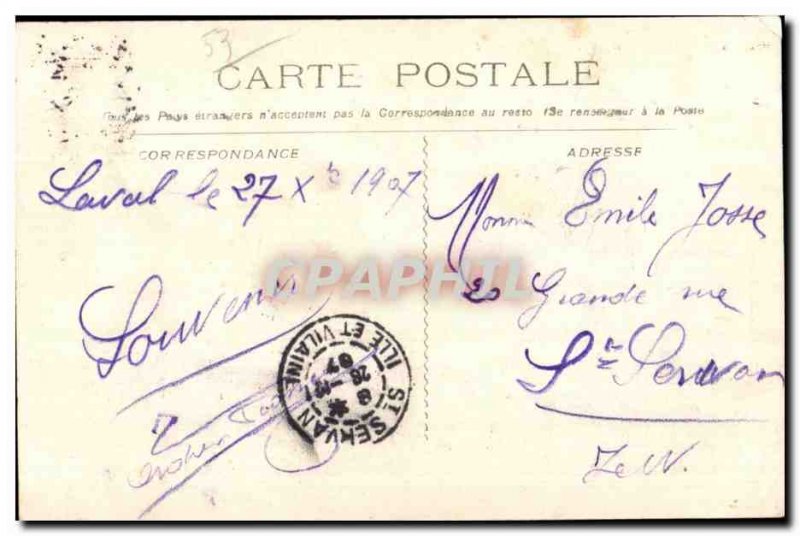 53
CARTE POSTALE
Tous les Pays étrangers n'acceptent pas la Correspondance au resto (Se renseigner à la Poste
CORRESPONDANCE
ADRESSE
Laval le 27 Xb 1907
Souvenir
Emile Josse
20 Grande rue
St Servan
I et V.
CPAPHIL
ST SERVAN
ILLE ET VILAINE
28
07